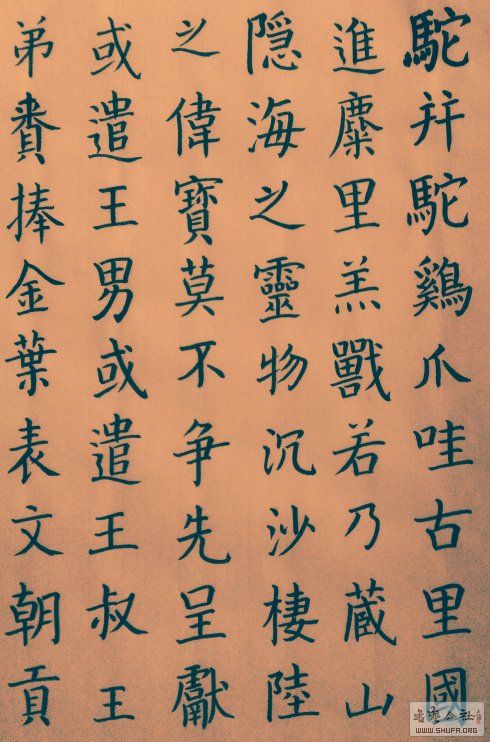 駝并駝鷄爪哇古里國
進麋里羔獸若乃藏山
隐海之靈物沉沙棲陸
之偉寶莫不争先呈獻
或遣王男或遣王叔王
弟賫捧金葉表文朝貢
WWW.SHUFA.ORG